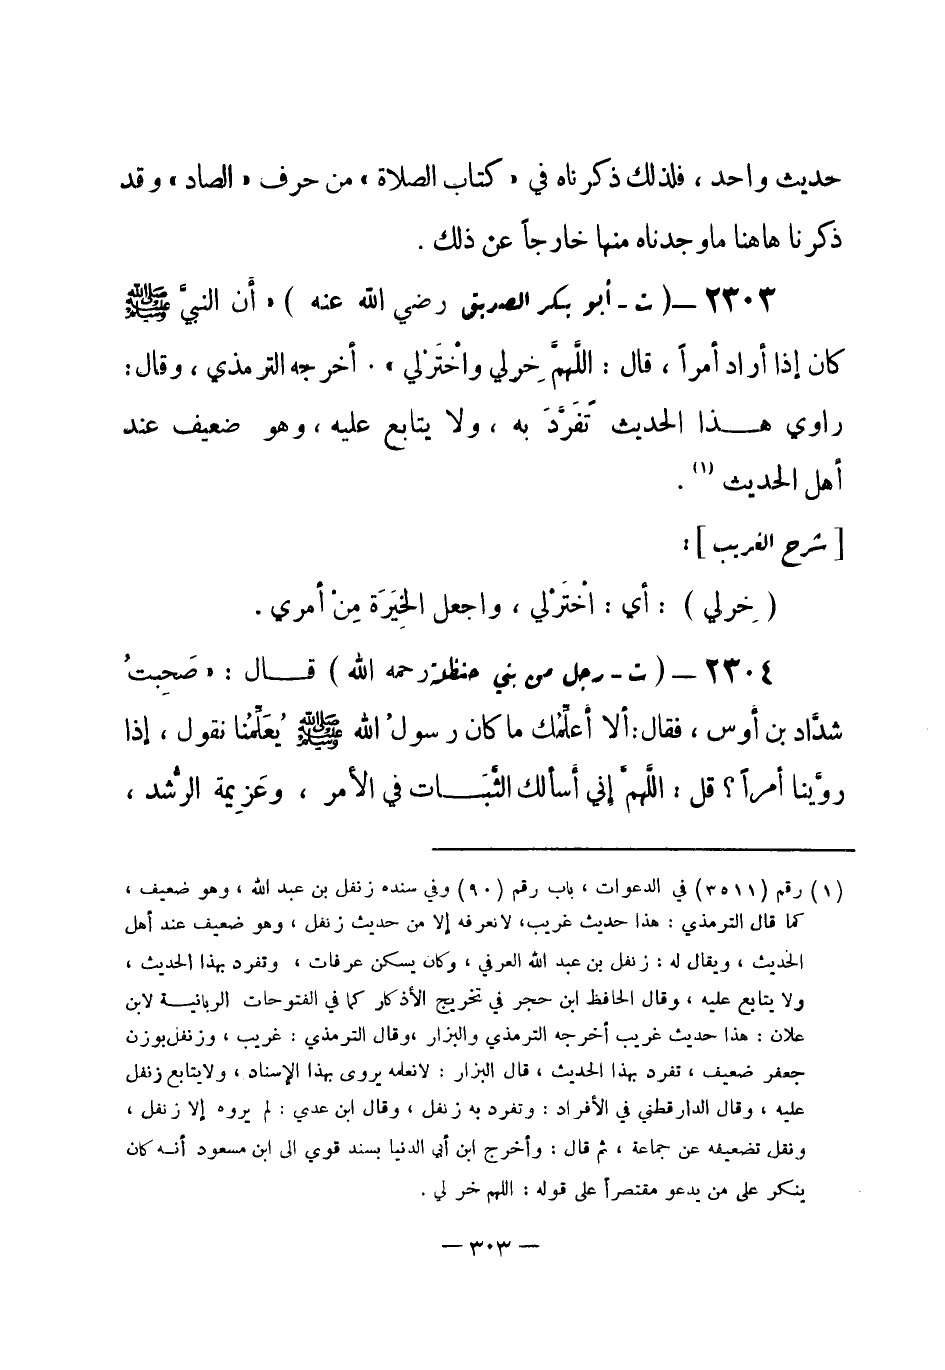 حديث واحد ، فلذلك ذكرناه في « كتاب الصلاة » من حرف « الصاد » وقد
ذكرنا هاهنا ماوجدناه منها خارجاً عن ذلك .
٢٣٠٣ – ( ت - أبو بكر الصديق رضي الله عنه ) « أن النبيَّ ﷺ
كان إذا أراد أمراً ، قال : اللَّهمَّ خِرلي واخْتَرْلي » . أخرجه الترمذي ، وقال :
راوي هـــذا الحديث تَفَرَّدَ به ، ولا يتابع عليه ، وهو ضعيف عند
أهل الحديث (١) .
[ شرح الغريب ] :
( خِرلي ) : أي : اخْتَرْلي ، واجعل الخِيَرَة مِنْ أمري .
٢٣٠٤ – ( ت - رجل من بني حنظلة رحمه الله ) قـــال : « صَحِبتُ
شدَّاد بن أوس ، فقال : ألا أعلِّمُك ما كان رسولُ الله ﷺ يُعَلِّمُنا نقول ، إذا
روَّينا أمراً ؟ قل : اللَّهمَّ إني أسألك الثَّبَـــات في الأمر ، وعَزِيمة الرُّشد ،
(١) رقم (٣٥١١) في الدعوات ، باب رقم (٩٠) وفي سنده زنفل بن عبد الله ، وهو ضعيف ،
كما قال الترمذي : هذا حديث غريب، لانعرفه إلا من حديث زنفل ، وهو ضعيف عند أهل
الحديث ، ويقال له : زنفل بن عبد الله العرفي ، وكان يسكن عرفات ، وتفرد بهذا الحديث ،
ولا يتابع عليه ، وقال الحافظ ابن حجر في تخريج الأذكار كما في الفتوحات الربانيــة لابن
علان : هذا حديث غريب أخرجه الترمذي والبزار ،وقال الترمذي : غريب ، وزنفل بوزن
جعفر ضعيف ، تفرد بهذا الحديث ، قال البزار : لانعلمه يروى بهذا الإسناد ، ولايتابع زنفل
عليه ، وقال الدارقطني في الأفراد : وتفرد به زنفل ، وقال ابن عدي : لم يروه إلا زنفل ،
ونقل تضعيفه عن جماعة ، ثم قال : وأخرج ابن أبي الدنيا بسند قوي الى ابن مسعود أنـه كان
ينكر على من يدعو مقتصراً على قوله : اللهم خر لي .
– ٣٠٣ –